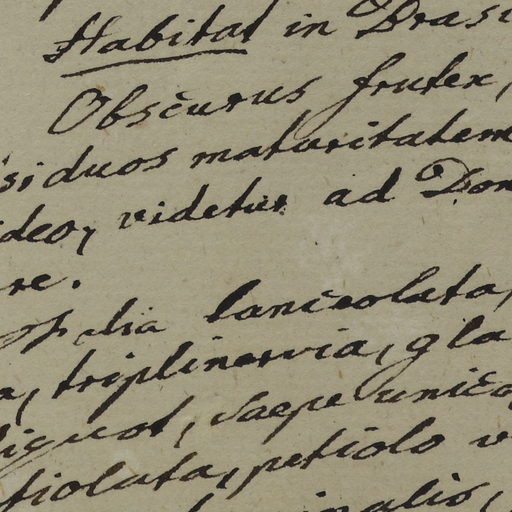 Habitat in Brasi
Obscurus frutex,
siduos maturitatem
ideo, videtur ad Don
re.
Folia lanceolata,
a, triplinervia, gla
liquot, saepe unico,
tiolata, petiolo v
nalis,